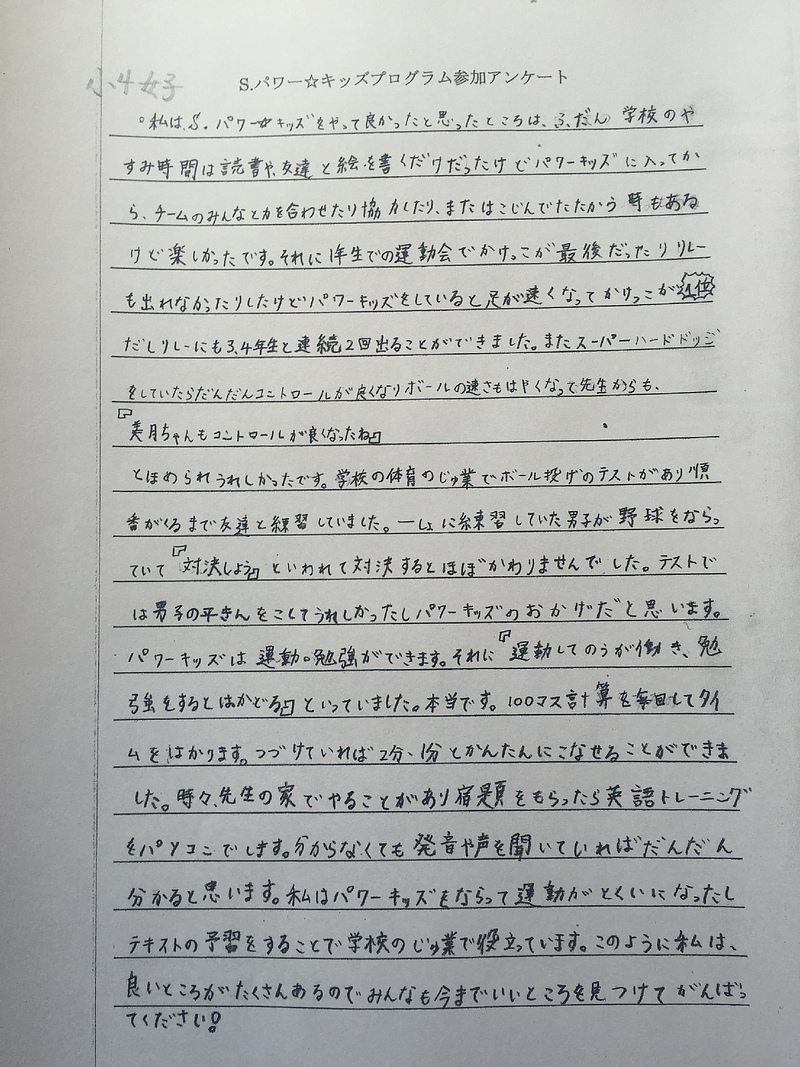 小4女子
S.パワー☆キッズプログラム参加アンケート
。私は、S.パワー☆キッズをやって良かったと思ったところは、ふだん 学校のや
すみ時間は読書や、友達と絵を書くだけだったけどパワーキッズに入ってか
ら、チームのみんなと力を合わせたり協力したり、またはこじんでたたかう時もある
けど楽しかったです。それに1年生での運動会でかけっこが最後だったりリレー
も出れなかったりしたけどパワーキッズをしていると足が速くなってかけっこが1位
だしリレーにも3、4年生と連続2回出ることができました。またスーパーハードドッジ
をしていたらだんだんコントロールが良くなりボールの速さもはやくなって先生からも、
『美月ちゃんもコントロールが良くなったね』
とほめられうれしかったです。学校の体育のじゅ業でボール投げのテストがあり順
番がくるまで友達と練習していました。一しょに練習していた男子が野球をならっ
ていて『対決しよう』といわれて対決するとほぼかわりませんでした。テストで
は男子の平きんをこしてうれしかったしパワーキッズのおかげだと思います。
パワーキッズは運動。勉強ができます。それに『運動してのうが働き、勉
強をするとはかどる』といっていました。本当です。100マス計算を毎回してタイ
ムをはかります。つづけていれば2分、1分とかんたんにこなせることができま
した。時々、先生の家でやることがあり宿題をもらったら英語トレーニング
をパソコンでします。分からなくても発音や声を聞いていればだんだん
分かると思います。私はパワーキッズをならって運動がとくいになったし
テキストの予習をすることで学校のじゅ業で役立っています。このように私は、
良いところがたくさんあるのでみんなも今までいいところを見つけてがんばっ
てください!